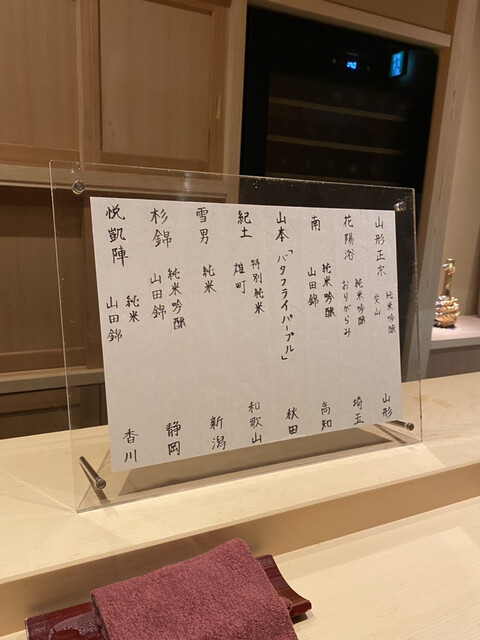 山形正宗 純米吟醸 山形
花陽浴 純米吟醸 おりがらみ 埼玉
南 純米吟醸 山田錦 高知
山本「バタフライパープル」 秋田
紀土 特別純米 雄町 和歌山
雪男 純米 新潟
杉錦 純米吟醸 山田錦 静岡
悦凱陣 純米 山田錦 香川